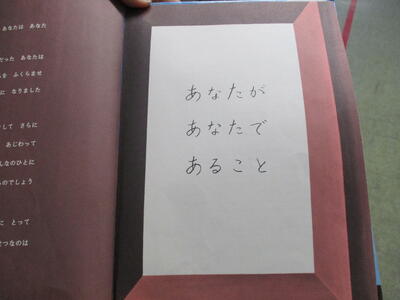 あなたは あなた
だった あなたは
を ふくらませ
に なりました
して さらに
あじわって
んなのひとに
るのでしょう
に とって
せつなのは
あなたが
あなたで
あること